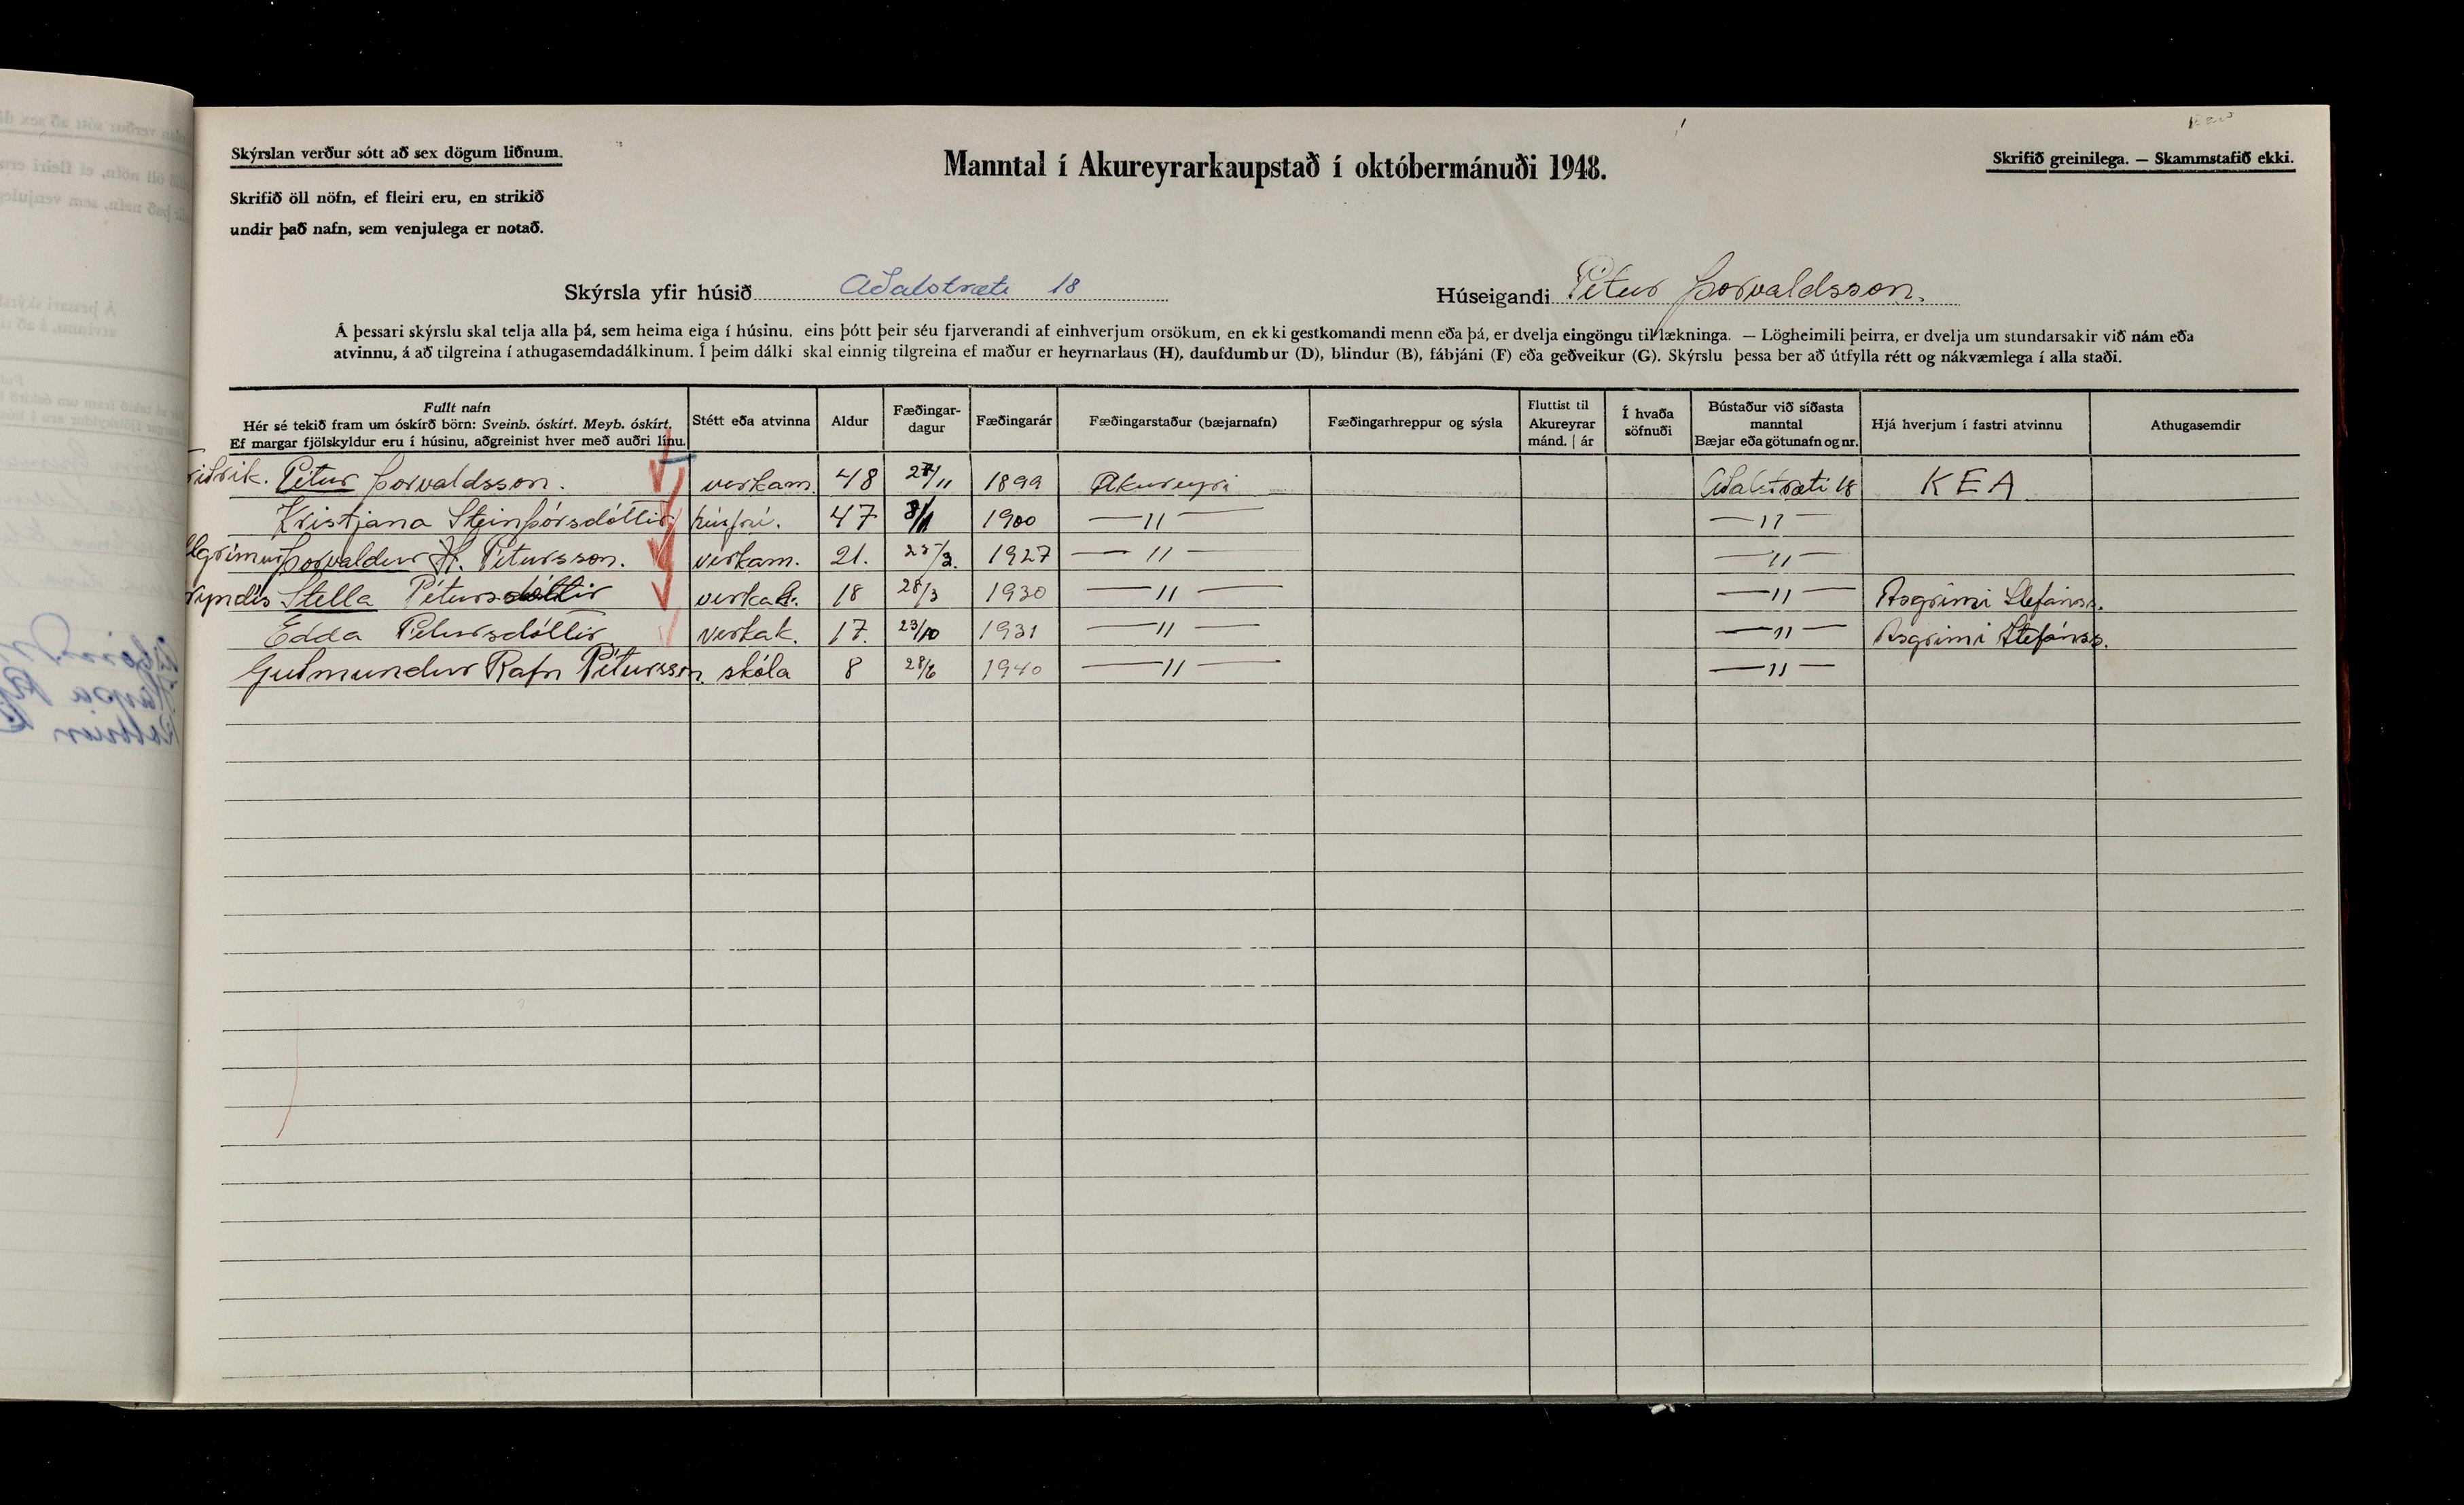 Skýrslan verður sótt að sex dögum liðnum.
Manntal í Akureyrarkaupstað í októbermánuði 1948.
Skrifið greinilega. — Skammstafið ekki.
Skrifið öll nöfn, ef fleiri eru, en strikið
undir það nafn, sem venjulega er notað.
Skýrsla yfir húsið Aðalstræti 18
Húseigandi Pétur Þorvaldsson.
Á þessari skýrslu skal telja alla þá, sem heima eiga í húsinu, eins þótt þeir séu fjarverandi af einhverjum orsökum, en ekki gestkomandi menn eða þá, er dvelja eingöngu til lækninga. — Lögheimili þeirra, er dvelja um stundarsakir við nám eða
atvinnu, á að tilgreina í athugasemdadálkinum. Í þeim dálki skal einnig tilgreina ef maður er heyrnarlaus (H), daufdumbur (D), blindur (B), fábjáni (F) eða geðveikur (G). Skýrslu þessa ber að útfylla rétt og nákvæmlega í alla staði.
Fullt nafn
Hér sé tekið fram um óskírð börn: Sveinb. óskírt. Meyb. óskírt.
Ef margar fjölskyldur eru í húsinu, aðgreinist hver með auðri línu.
Stétt eða atvinna
Aldur
Fæðingar-
dagur
Fæðingarár
Fæðingarstaður (bæjarnafn)
Fæðingarhreppur og sýsla
Fluttist til
Akureyrar
mánd. | ár
Í hvaða
söfnuði
Bústaður við síðasta
manntal
Bæjar eða götunafn og nr.
Hjá hverjum í fastri atvinnu
Athugasemdir
riðrik. Pétur Þorvaldsson. verkam. 48 27/11 1899 Akureyri Aðalstræti 18 KEA
Kristjana Steinþórsdóttir húsfrú. 47 1900 —"— —"—
lgrímur Þorvaldur H. Pétursson. verkam. 21. 25/3. 1927 —"— —"—
ryndís Stella Pétursdóttir verkak. 18 28/3 1930 —"— —"— Ásgrími Stefánss.
Edda Pétursdóttir verkak. 17. 23/10 1931 —"— —"— Ásgrími Stefánss.
Guðmundur Rafn Pétursson. skóla 8 28/6 1940 —"— —"—